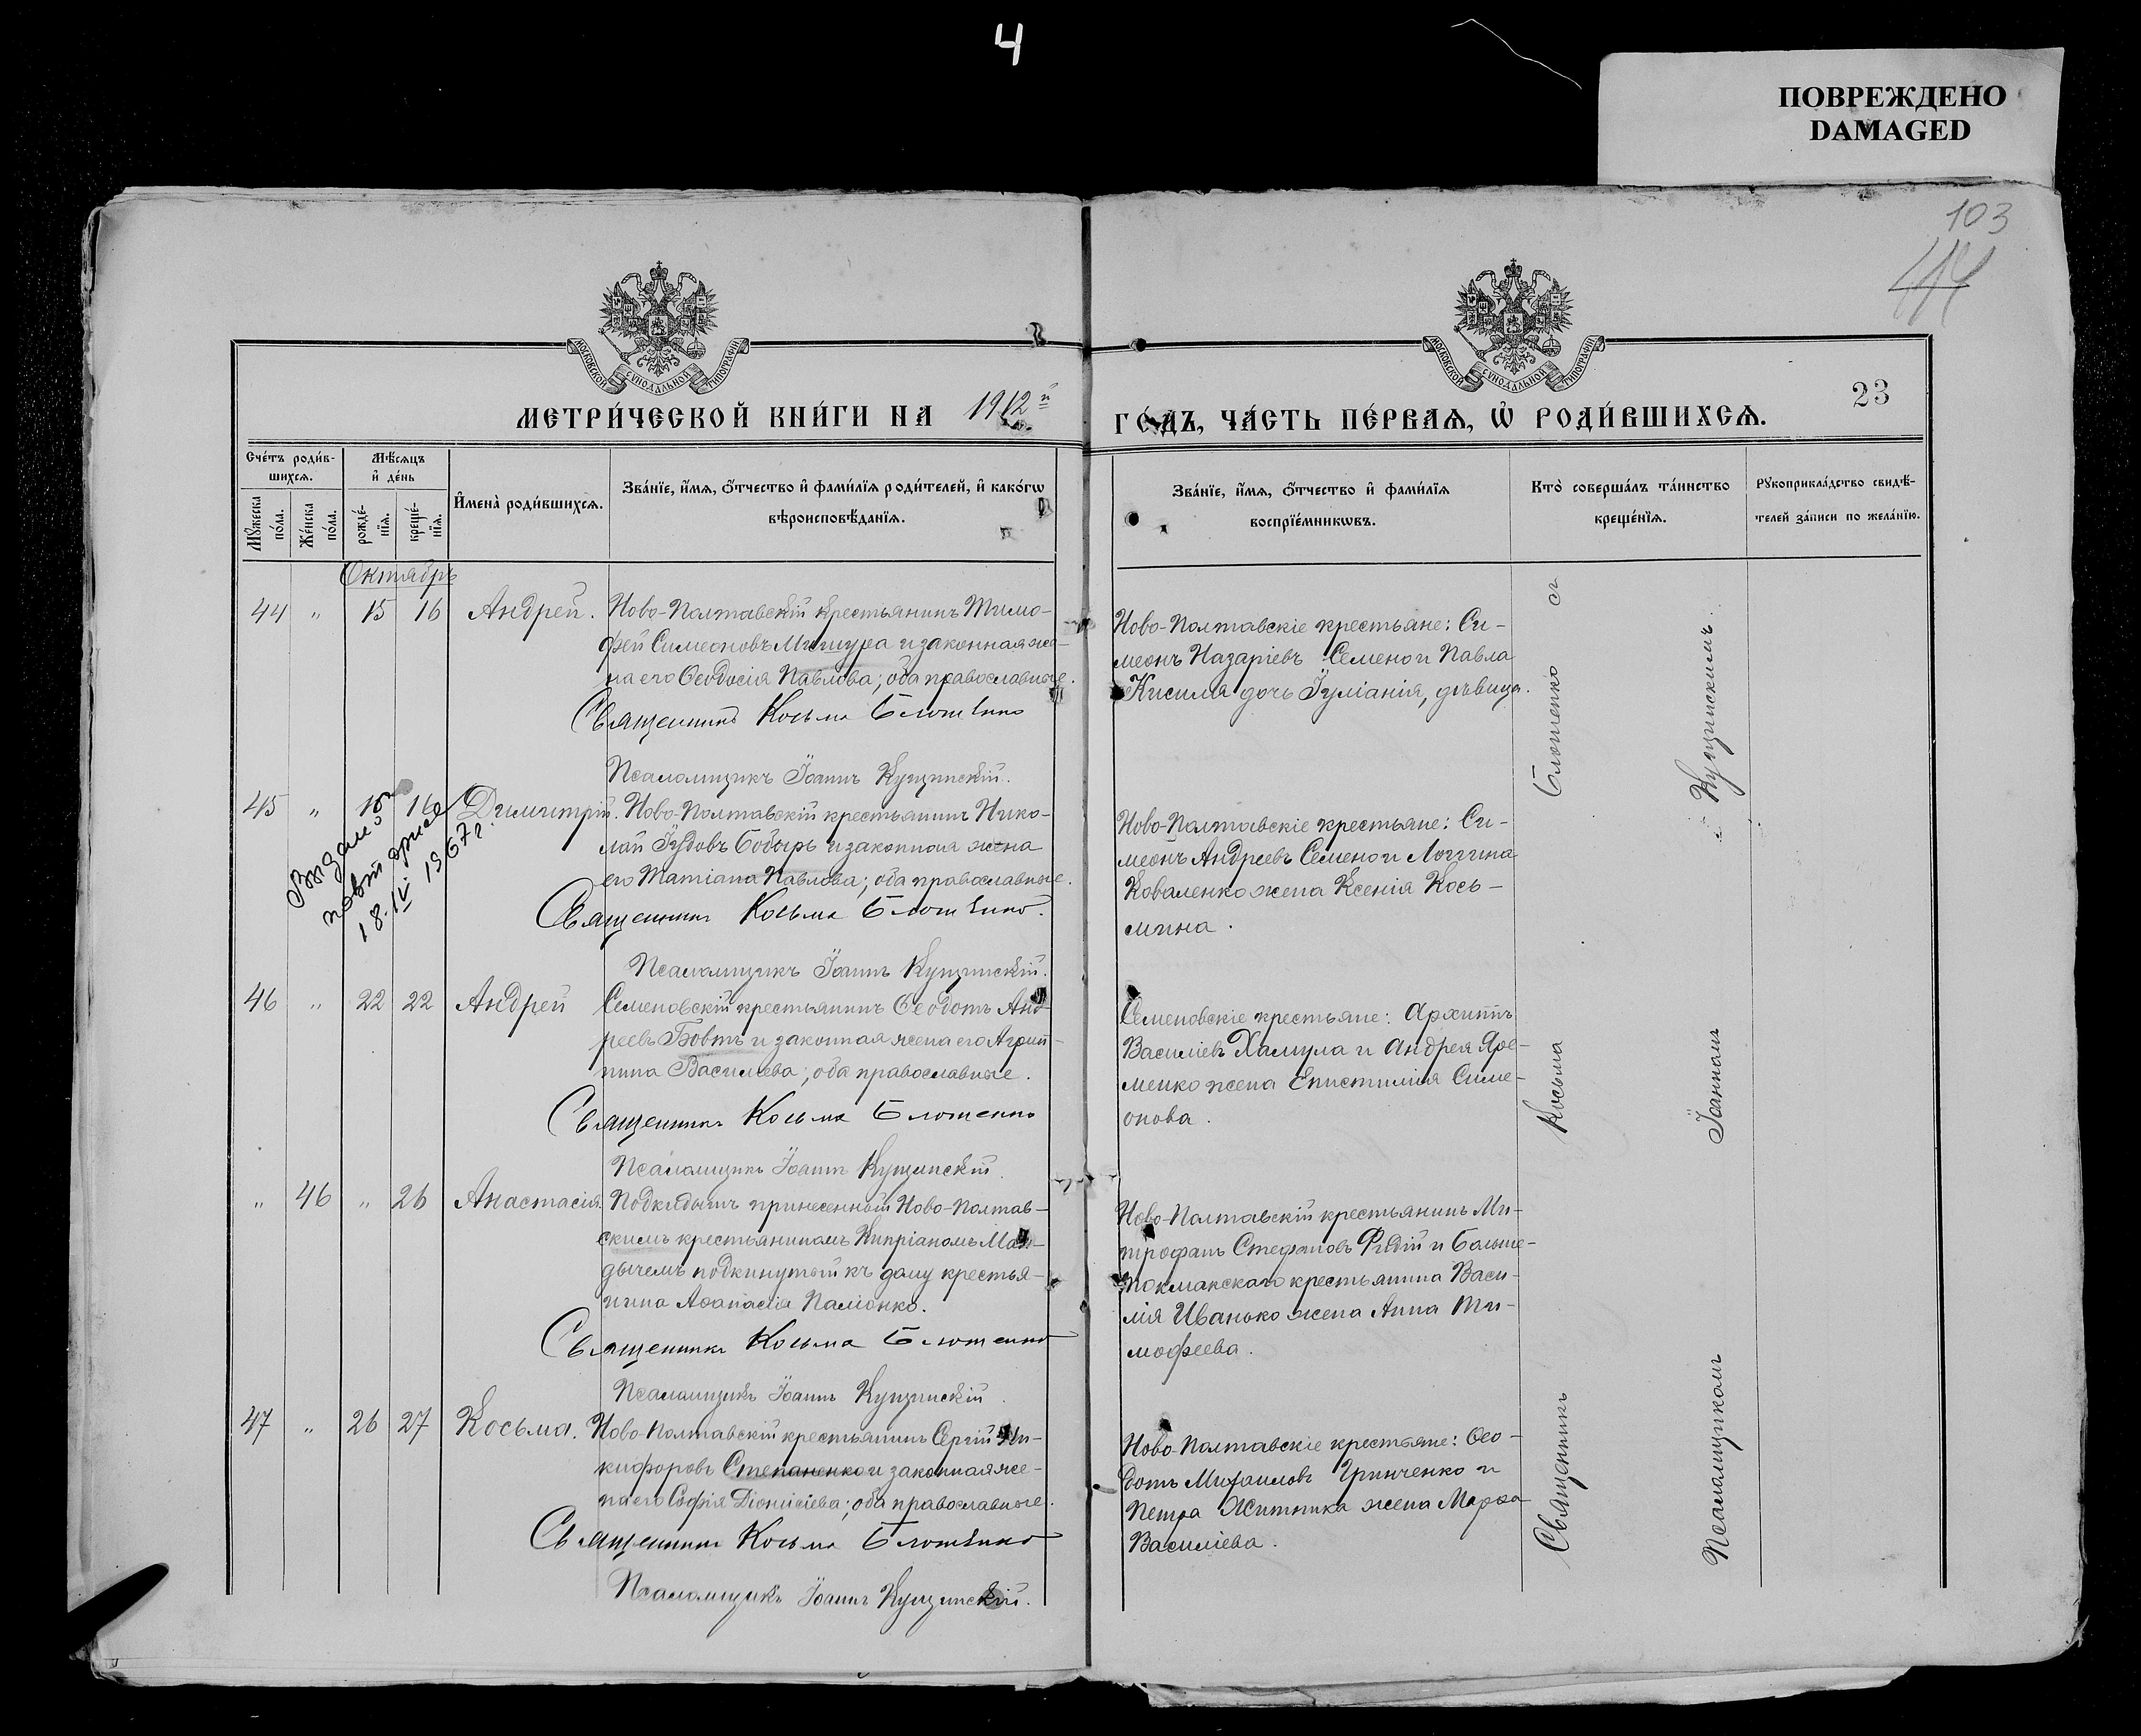 4
ПОВРЕЖДЕНО
DAMAGED
103
МОСКОВСКОЙ СѴНОДАЛЬНОЙ ТИПОГРАФІИ
МОСКОВСКОЙ СѴНОДАЛЬНОЙ ТИПОГРАФІИ
23
МЕТРИ́ЧЕСКОЙ КНИ́ГИ НА 1912й
ГО́ДЪ, ЧА́СТЬ ПЕ́РВАѦ, Ѡ҆ РОДИ́ВШИХСѦ.
Сче́тъ роди́в-
шихсѧ.
Мꙋ́жеска по́ла.
Же́нска по́ла.
Мѣ́сѧцъ
и҆ де́нь
рожде́-
нїѧ.
креще́-
нїѧ.
И҆мена̀ роди́вшихсѧ.
Зва́нїе, и҆́мѧ, ѻ҆́тчество и҆ фами́лїѧ роди́телей, и҆ како́гѡ
вѣроисповѣ́данїѧ.
Зва́нїе, и҆́мѧ, ѻ҆́тчество и҆ фами́лїѧ
воспрїе́мникѡвъ.
Кто̀ соверша́лъ та́инство
креще́нїѧ.
Рꙋкоприкла́дство свидѣ́-
телей за́писи по жела́нїю.
Октябрь
44 " 15 16 Андрей.
Ново-Полтавскій крестьянинъ Тимо-
фей Симеоновъ Мишура и законная же-
на его Ѳеодосія Павлова; оба православные.
Священникъ Косьма Блошенко
Псаломщикъ Іоаннъ Кущинскій.
Ново-Полтавскіе крестьяне: Си-
меонъ Назаріевъ Семено и Павла
Кисиля дочь Іуліанія, дѣвица.
45 " 15 16 Димитрій.
Ново-Полтавскій крестьянинъ Нико-
лай Іудовъ Бобырь и законная жена
его Татіана Павлова; оба православные.
Священникъ Косьма Блошенко.
Псаломщикъ Іоаннъ Кущинскій.
18.IV. 1967г.
Ново-Полтавскіе крестьяне: Си-
меонъ Андреевъ Семено и Логгина
Коваленко жена Ксенія Кось-
мина.
46 " 22 22 Андрей
Семеновскій крестьянинъ Ѳеодотъ Анд-
реевъ Бовтъ и законная жена его Агрип-
пина Васильева; оба православные.
Священникъ Косьма Блошенко
Псаломщикъ Іоаннъ Кущинскій.
Семеновскіе крестьяне: Архиппъ
Василіевъ Хамула и Андрея Яре-
менко жена Епистимія Симе-
онова.
" 46 " 26 Анастасія.
Подкидышъ принесенный Ново-Полтав-
скимъ крестьяниномъ Кипріаномъ
подкинутый къ дому крестья-
нина Аѳанасія
Священникъ Косьма Блошенко
Псаломщикъ Іоаннъ Кущинскій.
Ново-Полтавскій крестьянинъ Ми-
трофанъ Стефановъ и Больше-
токмакскаго крестьянина Васи-
лія Иванько жена Анна Ти-
мофеева.
47 " 26 27 Косьма.
Ново-Полтавскій крестьянинъ Сергій Ни-
кифоровъ Степаненко и законная же-
на его Софія Діонисіева; оба православные.
Священникъ Косьма Блошенко
Псаломщикъ Іоаннъ Кущинскій.
Ново-Полтавскіе крестьяне: Ѳео-
дотъ Михаиловъ Гринченко и
Петра Житника жена Марѳа
Василіева.
Священникъ Косьма Блошенко съ
Псаломщикомъ Іоанномъ Кущинскимъ.